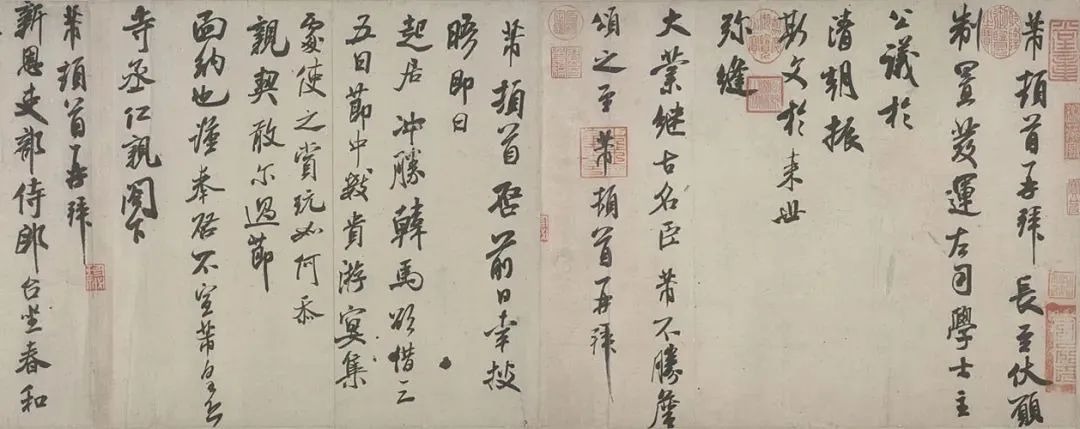 芾頓首再拜 長至伏願
制置發運左司學士主
公議於
清朝振
斯文於来世
弥縫
大業継古名臣 芾不勝詹
頌之至 芾頓首再拜
芾頓首啓 前日幸披
晤即日
起居冲勝韓馬欲借三
五日節中數貴游宴集
處使之賞玩如何忝
親契敢尔過節
面納也謹奉啓不宣芾皇恐
寺丞仁親閣下
芾頓首再拜
新恩吏部侍郎台坐春和